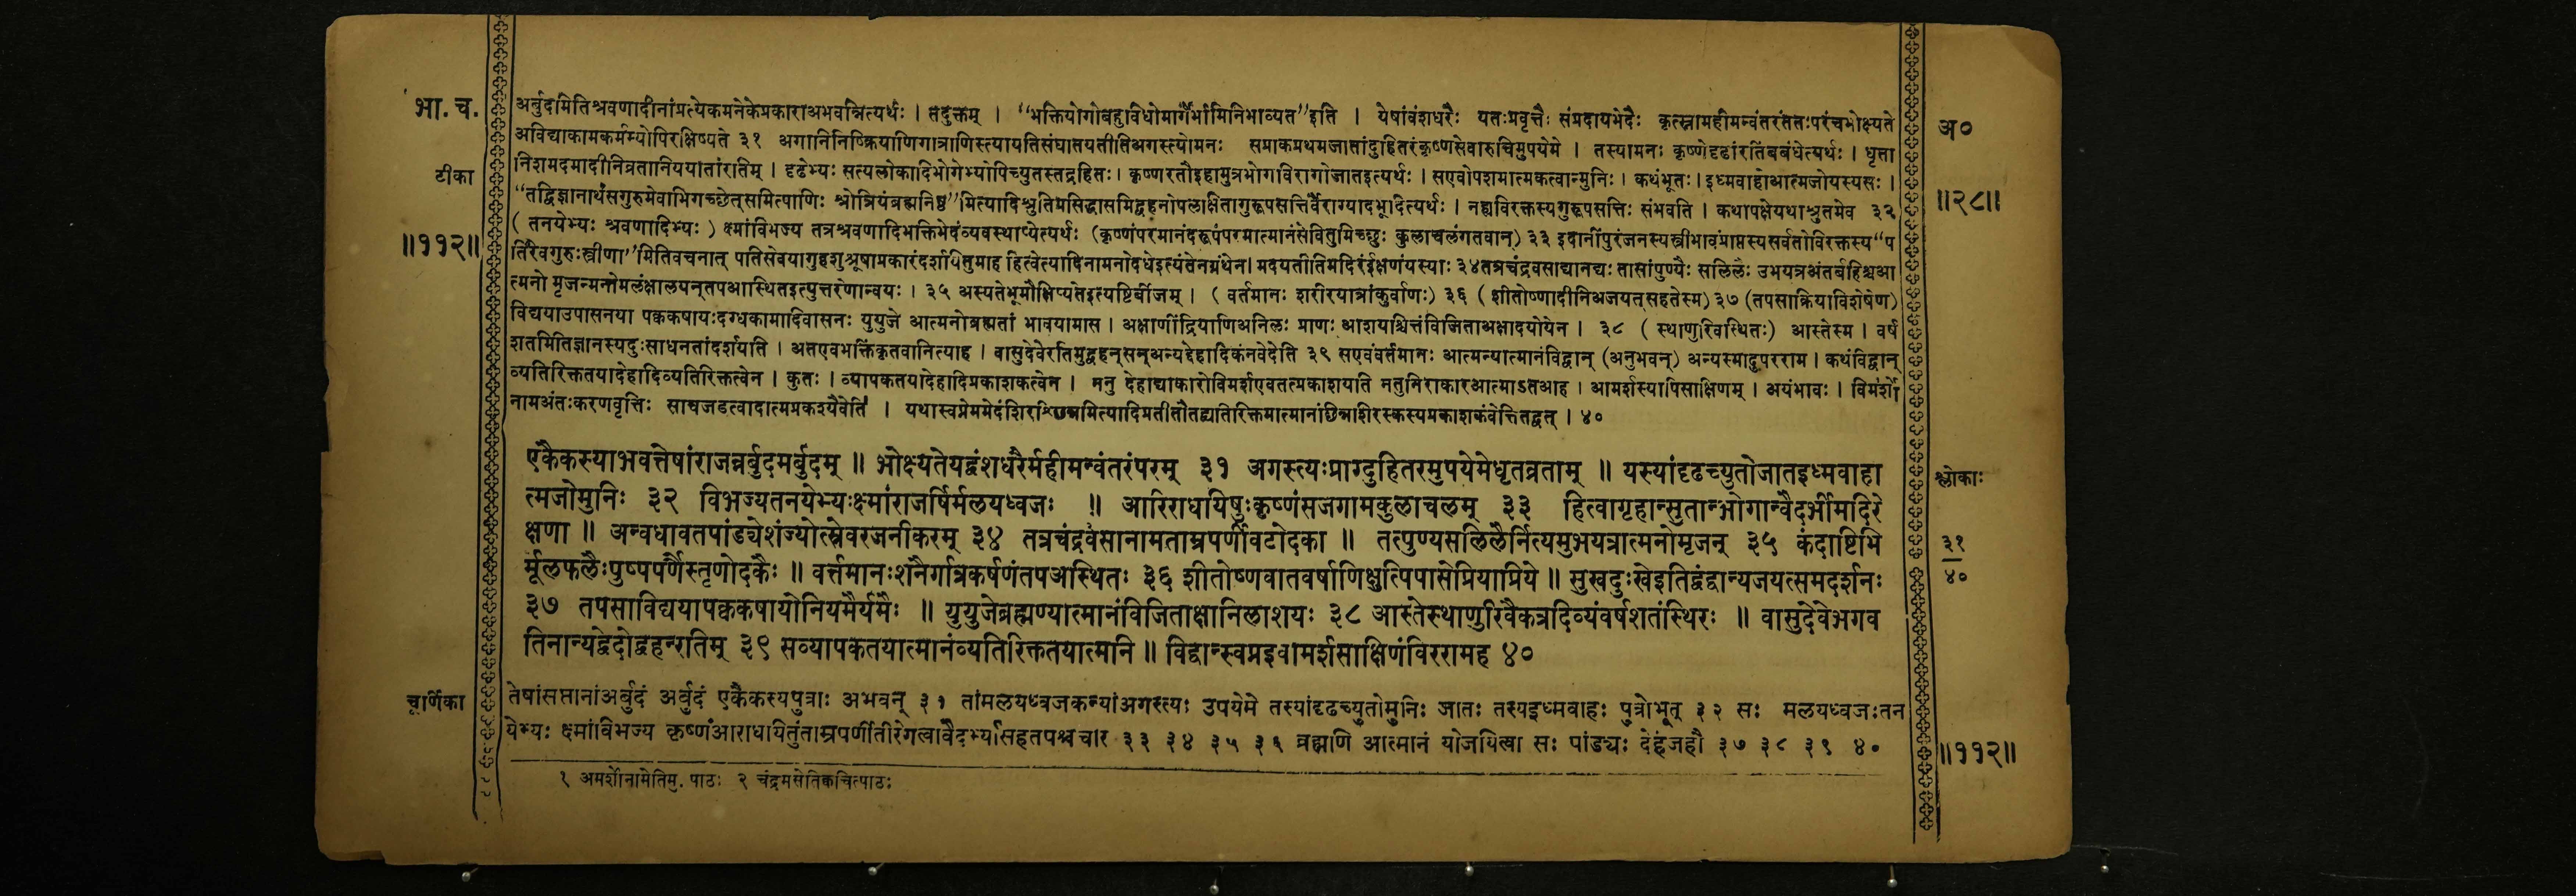 भा. च.
टीका
॥११२॥
अर्बुदमितिश्रवणादीनांप्रत्येकमनेकेप्रकाराअभवन्नित्यर्थः । तदुक्तम् । “भक्तियोगोबहुविधोमार्गैर्भामिनिभाव्यत”इति । येषांवंशधरैः यतःप्रवृत्तैः संप्रदायभेदैः कृत्स्नामहीमन्वंतरंततःपरंचभोक्ष्यते
अविद्याकामकर्मभ्योपिरक्षिष्यते ३१ अगानिनिष्क्रियाणिगात्राणिस्त्यायतिसंघातयतीतिअगस्त्योमनः समाकप्रथमजातांदुहितरंकृष्णसेवारुचिमुपयेमे । तस्यामनः कृष्णेदृढांरतिंबबंधेत्यर्थः । धृता
निशमदमादीनिव्रतानिययातांरतिम् । दृढेभ्यः सत्यलोकादिभोगेभ्योपिच्युतस्तद्रहितः । कृष्णरतौइहामुत्रभोगविरागोजातइत्यर्थः । सएवोपशमात्मकत्वान्मुनिः । कथंभूतः । इध्मवाहोआत्मजोयस्यसः ।
“तद्विज्ञानार्थंसगुरुमेवाभिगच्छेत्समित्पाणिः श्रोत्रियंब्रह्मनिष्ठ”मित्यादिश्रुतिप्रसिद्धासमिद्वहनोपलक्षितागुरूपसत्तिर्वैराग्यादभूदित्यर्थः । नह्यविरक्तस्यगुरूपसत्तिः संभवति । कथापक्षेयथाश्रुतमेव ३२
( तनयेभ्यः श्रवणादिभ्यः ) क्ष्मांविभज्य तत्रश्रवणादिभक्तिभेदंव्यवस्थाप्येत्यर्थः (कृष्णंपरमानंदरूपंपरमात्मानंसेवितुमिच्छुः कुलाचलंगतवान्) ३३ इदानींपुरंजनस्यस्त्रीभावंप्राप्तस्यसर्वतोविरक्तस्य“प
तिरेवगुरुःस्त्रीणा”मितिवचनात् पतिसेवयागुरुशुश्रूषाप्रकारंदर्शयितुमाह हित्वेत्यादिनामनोदधेइत्यंतेनग्रंथेन। मदयतीतिमदिरंईक्षणंयस्याः ३४तत्रचंद्रवसाद्यानद्यः तासांपुण्यैः सलिलैः उभयत्रअंतर्बहिश्चआ
त्मनो मृजन्मनोमलंक्षालयन्तपआास्थितइत्युत्तरेणान्वयः । ३५ अस्यतेभूमौक्षिप्यतेइत्यष्टिर्बीजम् । ( वर्तमानः शरीरयात्रांकुर्वाणः) ३६ ( शीतोष्णादीनिअजयत्सहतेस्म) ३७ (तपसाक्रियाविशेषेण)
विद्ययाउपासनया पक्वकषायःदग्धकामादिवासनः युयुजे आत्मनोब्रह्मतां भावयामास । अक्षाणींद्रियाणिअनिलः प्राणः आशयश्चित्तंविजिताअक्षादयोयेन । ३८ ( स्थाणुरिवस्थितः) आस्तेस्म । वर्ष
शतमितिज्ञानस्यदुःसाधनतांदर्शयति । अतएवभक्तिंकृतवानित्याह । वासुदेवेरतिमुद्वहन्सन्अन्यद्देहादिकंनवेदेति ३९ सएवंवर्तमानः आत्मन्यात्मानंविद्वान् (अनुभवन्) अन्यस्मादुपरराम । कथंविद्वान्
व्यतिरिक्ततयादेहादिव्यतिरिक्तत्वेन । कुतः । व्यापकतयादेहादिप्रकाशकत्वेन । ननु देहाद्याकारोविमर्शएवतत्प्रकाशयाति नतुनिराकारआत्माऽतआह । आमर्शस्यापिसाक्षिणम् । अयंभावः । विमर्शो
नामअंतःकरणवृत्तिः साचजडत्वादात्मप्रकाश्यैवेति । यथास्वप्नेममेदंशिरश्छिन्नमित्यादिप्रतीतौतद्व्यतिरिक्तमात्मानंछिन्नशिरस्कस्यप्रकाशकंवेत्तितद्वत् । ४०
एकैकस्याभवत्तेषांराजन्नर्बुदमर्बुदम् ॥ भोक्ष्यतेयद्वंशधरैर्महीमन्वंतरंपरम् ३१ अगस्त्यःप्राग्दुहितरमुपयेमेधृतव्रताम् ॥ यस्यांदृढच्युतोजातइध्मवाहा
त्मजोमुनिः ३२ विभज्यतनयेभ्यःक्ष्मांराजर्षिर्मलयध्वजः ॥ आरिराधयिषुःकृष्णंसजगामकुलाचलम् ३३ हित्वागृहान्सुतान्भोगान्वैदर्भीमदिरे
क्षणा ॥ अन्वधावतपांड्येशंज्योत्स्नेवरजनीकरम् ३४ तत्रचंद्रवसानामताम्रपर्णीवटोदका ॥ तत्पुण्यसलिलैर्नित्यमुभयत्रात्मनोमृजन् ३५ कंदाष्टिभि
र्मूलफलैःपुष्पपर्णैस्तृणोदकैः ॥ वर्त्तमानःशनैर्गात्रकर्षणंतपआस्थितः ३६ शीतोष्णवातवर्षाणिक्षुत्पिपासेप्रियाप्रिये ॥ सुखदुःखेइतिद्वंद्वान्यजयत्समदर्शनः
३७ तपसाविद्ययापक्वकषायोनियमैर्यमैः ॥ युयुजेब्रह्मण्यात्मानंविजिताक्षानिलाशयः ३८ आस्तेस्थाणुरिवैकत्रदिव्यंवर्षशतंस्थिरः ॥ वासुदेवेभगव
तिनान्यद्वेदोद्वहन्रतिम् ३९ सव्यापकतयात्मानंव्यतिरिक्ततयात्मनि ॥ विद्वान्स्वप्नइवामर्शसाक्षिणंविररामह ४०
चूर्णिका
तेषांसप्तानांअर्बुदं अर्बुदं एकैकस्यपुत्राः अभवन् ३१ तांमलयध्वजकन्यांअगस्त्यः उपयेमे तस्यांदृढच्युतोमुनिः जातः तस्यइध्मवाहः पुत्रोभूत् ३२ सः मलयध्वजःतन
येभ्यः क्ष्मांविभज्य कृष्णंआराधयितुंताम्रपर्णीतीरेगत्वावैदर्भ्यासहतपश्चचार ३३ ३४ ३५ ३६ ब्रह्मणि आत्मानं योजयित्वा सः पांड्यः देहंजहौ ३७ ३८ ३९ ४०
१ अमर्शोनामेतिमु. पाठः २ चंद्रमसेतिक्वचित्पाठः
अ०
॥२८॥
श्लोकाः
३१
४०
॥११२॥